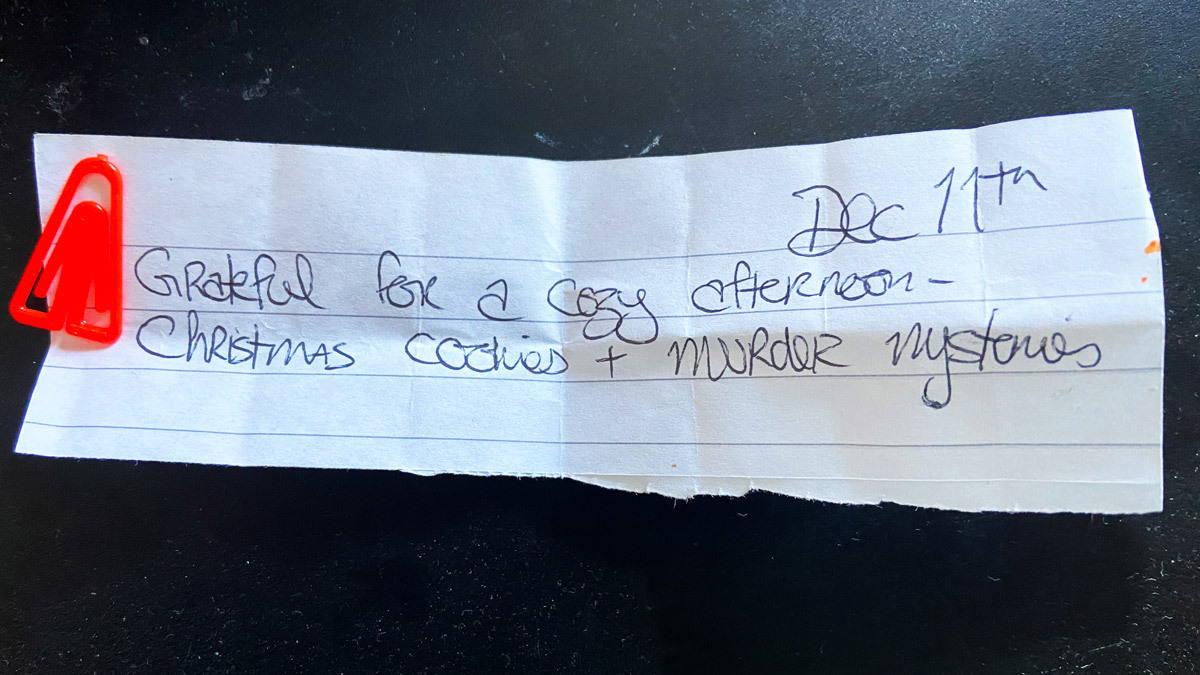 Dec 11th
Grateful for a cozy afternoon-
Christmas cookies + murder mysteries